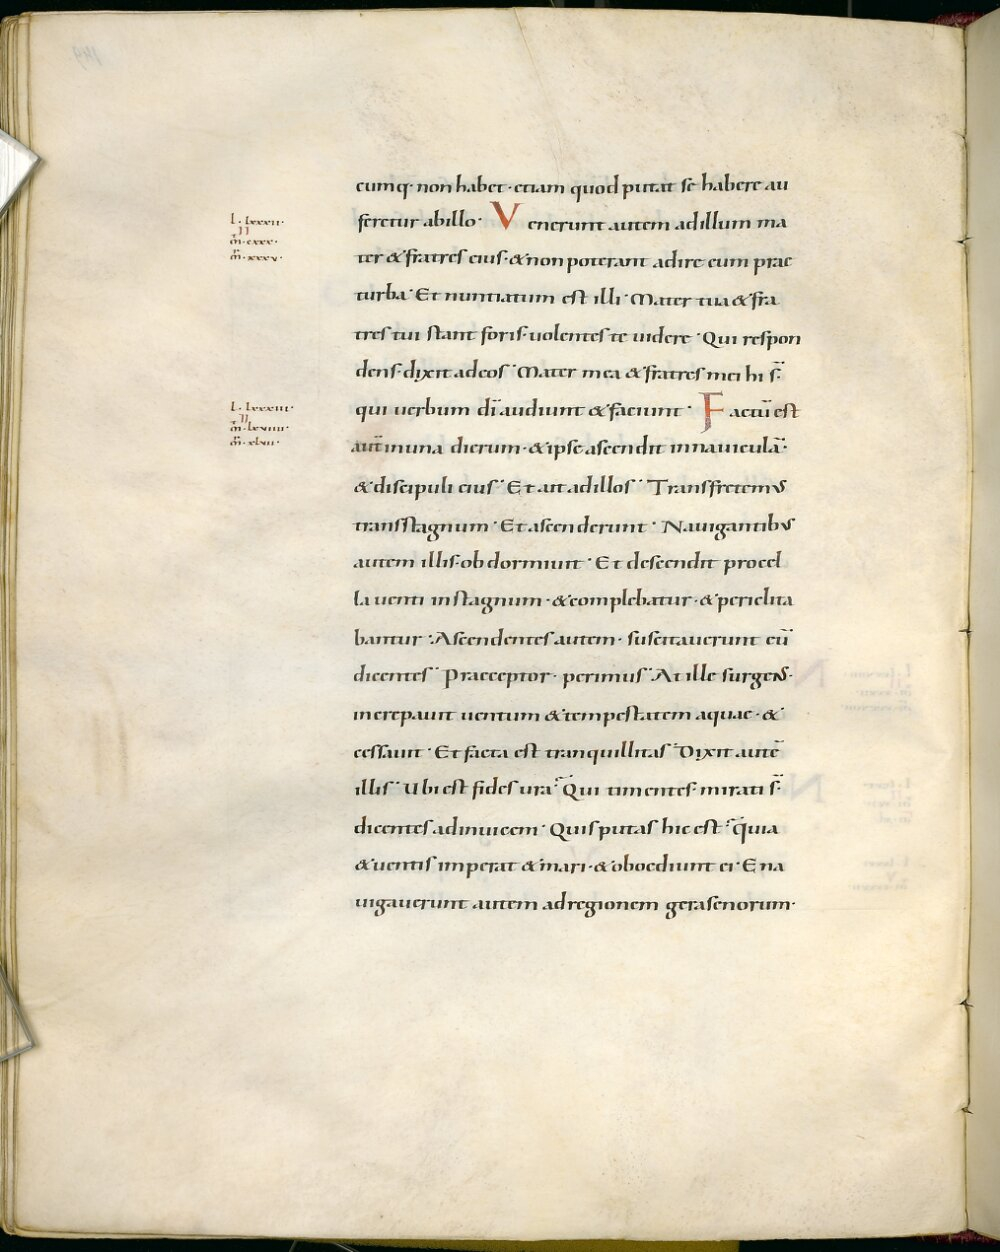 cumq· non habet· etiam quod putat se habere au
feretur ab illo· Venerunt autem ad illum ma
L· lxxxii·
II
m̄· cxxx·
m̄· xxxv·
ter & fratres eius· & non poterant adire eum prae
turba· Et nuntiatum est illi· Mater tua & fra
tres tui stant foris· uolentes te uidere· Qui respon
dens· dixit ad eos· Mater mea & fratres mei hi s̄·
qui uerbum dī audiunt & faciunt· Factū est
L· lxxxiii·
II
m̄· lxviiii·
m̄· xlvii·
aut̄ in una dierum· & ipse ascendit in nauiculā·
& discipuli eius· Et ait ad illos· Transfretemus
trans stagnum· Et ascenderunt· Nauigantibus
autem illis· obdormiuit· Et descendit procel
la uenti in stagnum· & complebatur· & periclita
bantur· Ascendentes autem· suscitauerunt eū
dicentes· Praeceptor· perimus· At ille surgens·
increpauit uentum & tempestatem aquae· &
cessauit· Et facta est tranquillitas· Dixit autē
illis· Ubi est fides ur̄a· Qui timentes· mirati s̄·
dicentes ad inuicem· Quis putas hic est· quia
& uentis imperat & mari· & oboediunt ei· Ena
uigauerunt autem ad regionem gerasenorum·